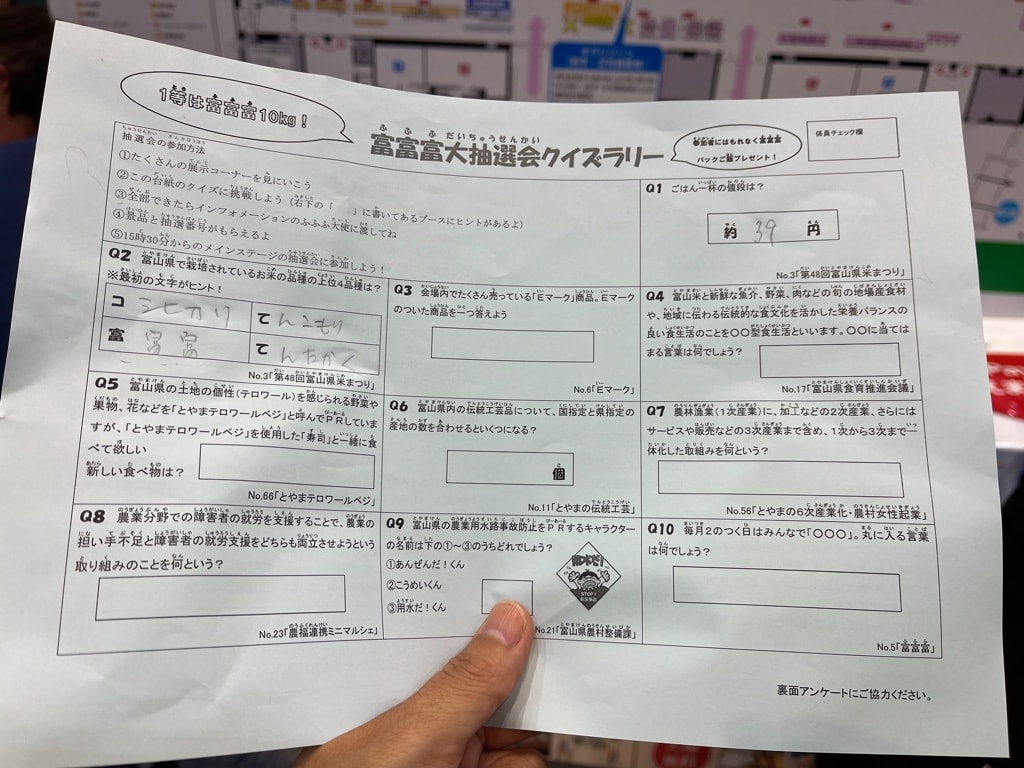 1等は富富富10kg！
富富富大抽選会クイズラリー
ふふふだいちゅうせんかい
参加者にはもれなく富富富
パックご飯プレゼント！
係員チェック欄
抽選会の参加方法
①たくさんの展示コーナーを見にいこう
②この台紙のクイズに挑戦しよう（右下の「　」に書いてあるブースにヒントがあるよ）
③全部できたらインフォメーションのふふふ大使に渡してね
④景品と抽選番号がもらえるよ
⑤15時30分からのメインステージの抽選会に参加しよう！
Q1 ごはん一杯の値段は？
約 39 円
No.3「第48回富山県米まつり」
Q2 富山県で栽培されているお米の品種の上位4品種は？
※最初の文字がヒント！
コ シヒカリ
て んこもり
富 富富
て んたかく
No.3「第48回富山県米まつり」
Q3 会場内でたくさん売っている「Eマーク」商品。Eマーク
のついた商品を一つ答えよう
No.6「Eマーク」
Q4 富山米と新鮮な魚介、野菜、肉などの旬の地場産食材
や、地域に伝わる伝統的な食文化を活かした栄養バランスの
良い食生活のことを〇〇型食生活といいます。〇〇に当ては
まる言葉は何でしょう？
No.17「富山県食育推進会議」
Q5 富山県の土地の個性（テロワール）を感じられる野菜や
果物、花などを「とやまテロワールベジ」と呼んでPRしていま
すが、「とやまテロワールベジ」を使用した「寿司」と一緒に食
べて欲しい
新しい食べ物は？
No.66「とやまテロワールベジ」
Q6 富山県内の伝統工芸品について、国指定と県指定の
産地の数を合わせるといくつになる？
個
No.11「とやまの伝統工芸」
Q7 農林漁業（1次産業）に、加工などの2次産業、さらには
サービスや販売などの3次産業まで含め、1次から3次まで一
体化した取組みを何という？
No.56「とやまの6次産業化・農村女性起業」
Q8 農業分野での障害者の就労を支援することで、農業の
担い手不足と障害者の就労支援をどちらも両立させようという
取り組みのことを何という？
No.23「農福連携ミニマルシェ」
Q9 富山県の農業用水路事故防止をPRするキャラクター
の名前は下の①～③のうちどれでしょう？
①あんぜんだ！くん
②こうめいくん
③用水だ！くん
STOP!
No.21「富山県農村整備課」
Q10 毎月2のつく日はみんなで「〇〇〇」。丸に入る言葉
は何でしょう？
No.5「富富富」
裏面アンケートにご協力ください。